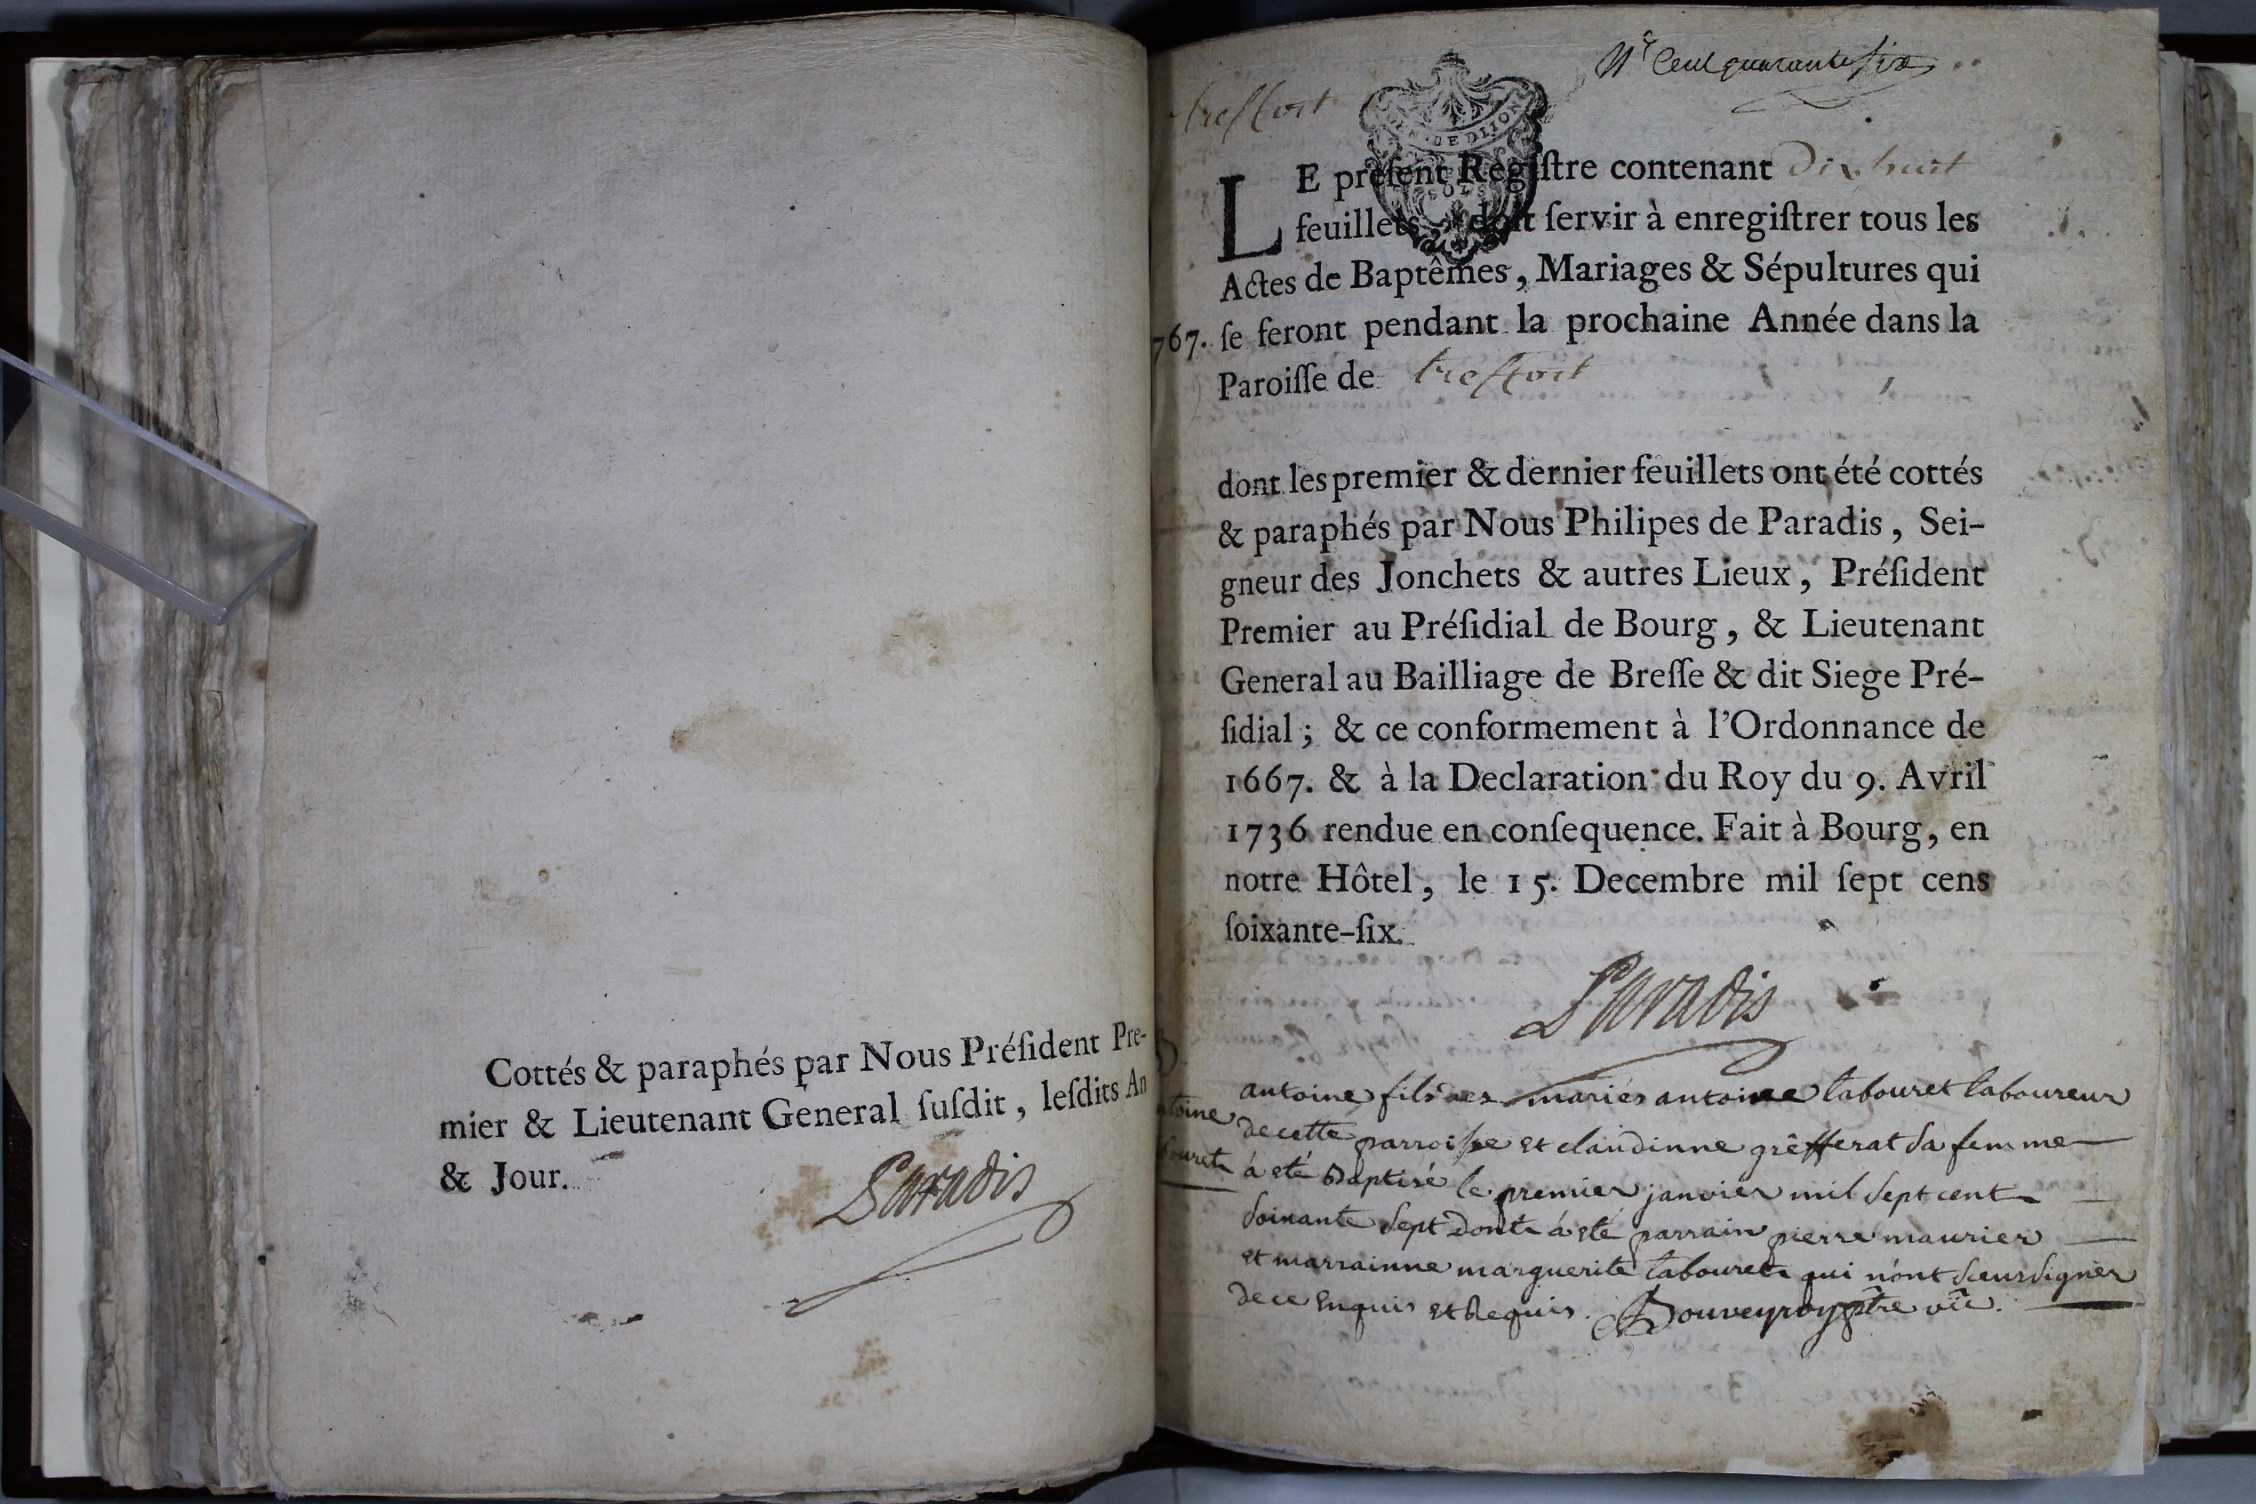 Cottés & paraphés par Nous Préſident Pre-
mier & Lieutenant General ſuſdit, leſdits An
& Jour.
Paradis
Nº Cent quarante six
treffort
GEN. DE DIJON
SOLS
LE preſent Regiſtre contenant dix huit
feuillets, doit ſervir à enregiſtrer tous les
Actes de Baptêmes, Mariages & Sépultures qui
767. ſe feront pendant la prochaine Année dans la
Paroiſſe de treffort
dont les premier & dernier feuillets ont été cottés
& paraphés par Nous Philipes de Paradis, Sei-
gneur des Jonchets & autres Lieux, Préſident
Premier au Préſidial de Bourg, & Lieutenant
General au Bailliage de Breſſe & dit Siege Pré-
ſidial; & ce conformement à l'Ordonnance de
1667. & à la Declaration du Roy du 9. Avril
1736 rendue en conſequence. Fait à Bourg, en
notre Hôtel, le 15. Decembre mil ſept cens
ſoixante-ſix.
Paradis
B
toine
bouret
antoine fils des mariés antoine tabouret laboureur
de cette parroisse et claudinne grêfferat sa femme
á eté Baptisé le premier janvier mil sept cent
soixante sept dont á eté parrain pierre maurier
et marrainne marguerite tabouret qui n'ont sceu signer
de ce Enquis et Requis. Bouveyroy ptre vic.